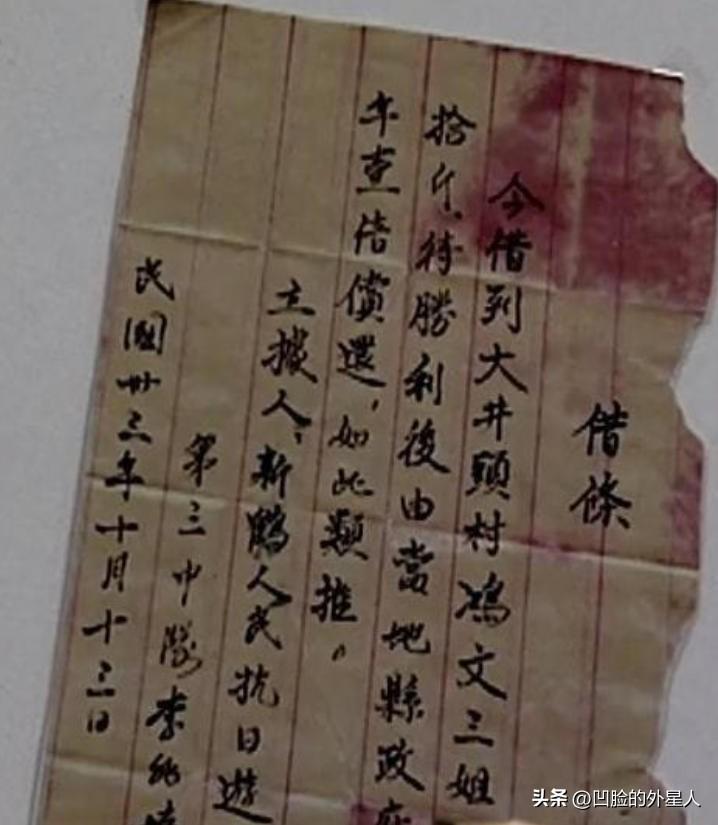 借條
今借到大井頭村鴻文三姐
拾斤、待勝利後由當地縣政府
年壹倍償還，如此類推。
立據人：新鶴人民抗日遊
第三中隊李
民國卅三年十月十三日
头条 @凹脸的外星人